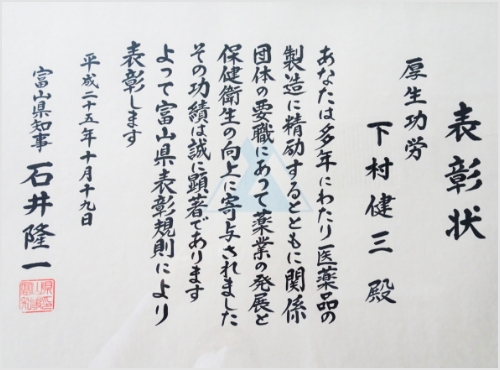 表彰状
厚生功労
下村健三殿
あなたは多年にわたり医薬品の
製造に精励するとともに関係
団体の要職にあって薬業の発展と
保健衛生の向上に寄与されました
その功績は誠に顕著であります
よって富山県表彰規則により
表彰します
平成二十五年十月十九日
富山県知事 石井隆一